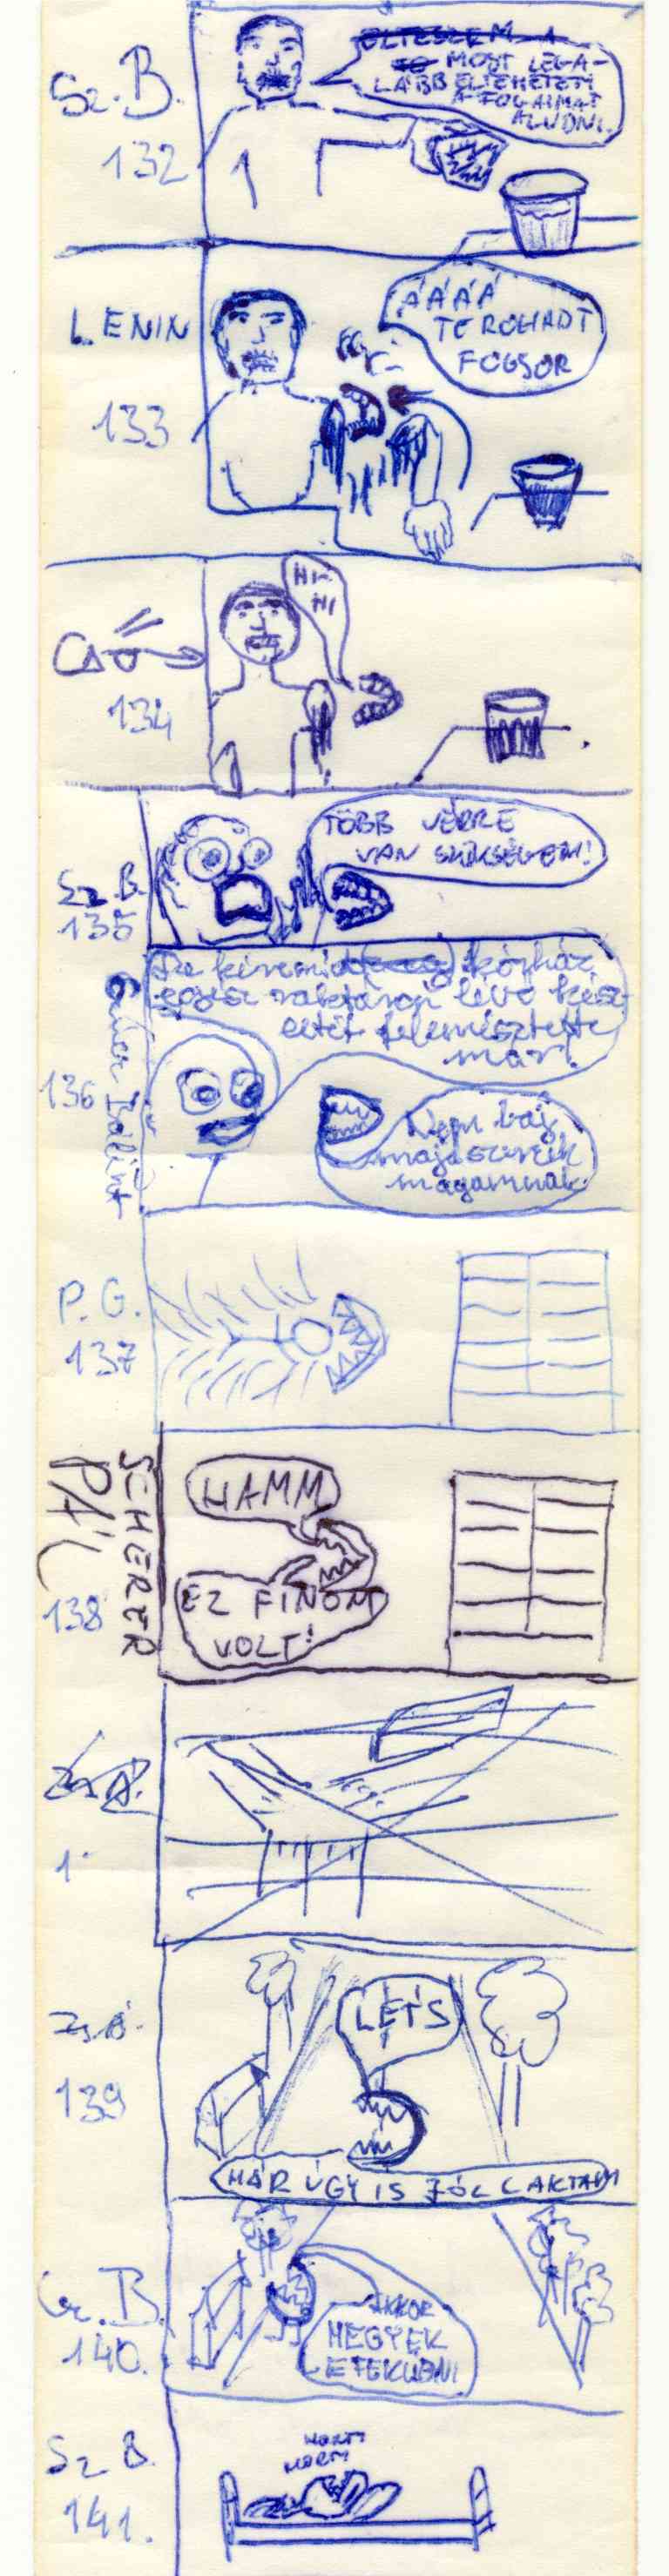 Sz. B.
132
MOST LEGA-
LÁBB ELTEHETEM
A FOGAIMAT
ALUDNI.
LENIN
133
ÁÁÁÁ
TE ROHADT
FOGSOR
134
HI-
HI
Sz. B.
135
TÖBB VÉRRE
VAN SZÜKSÉGEM!
Bálint
136
kórház
egész raktáron lévő kész-
letét felemésztette
már!
Nem baj
majd szerzek
magamnak.
P. G.
137
SCHERER
PÁL
138
HAMM
EZ FINOM
VOLT!
Zs. Á.
139
LET'S
MÁR ÚGY IS JÓL LAKTAM
Gr. B.
140.
AKKOR
MEGYEK
LEFEKÜDNI
Sz B.
141.
HORTY
HORTY